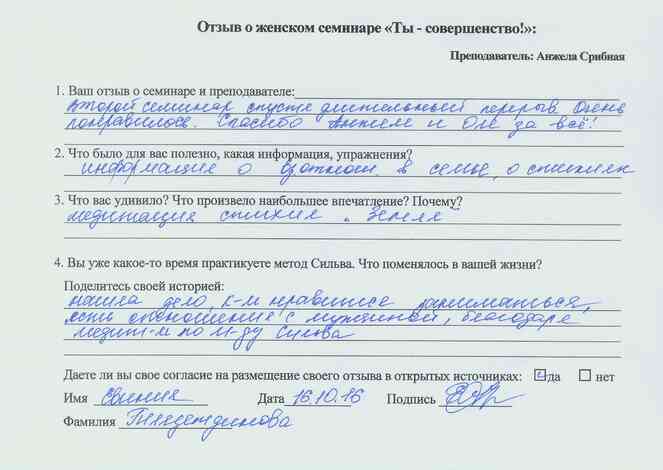 Отзыв о женском семинаре «Ты - совершенство!»:
Преподаватель: Анжела Срибная
1. Ваш отзыв о семинаре и преподавателе:
второй семинар спустя длительный перерыв. Очень
понравилось. Спасибо Анжеле и Оле за всё!
2. Что было для вас полезно, какая информация, упражнения?
информация о взаимоот. в семье, о стихиях
3. Что вас удивило? Что произвело наибольшее впечатление? Почему?
медитация стихия Земля
4. Вы уже какое-то время практикуете метод Сильва. Что поменялось в вашей жизни?
Поделитесь своей историей:
нашла дело, к-м нравится заниматься,
есть отношения с мужчиной, благодаря
медит-м по м-ду Сильва
Даете ли вы свое согласие на размещение своего отзыва в открытых источниках: да нет
Имя Дата 16.10.16 Подпись
Фамилия